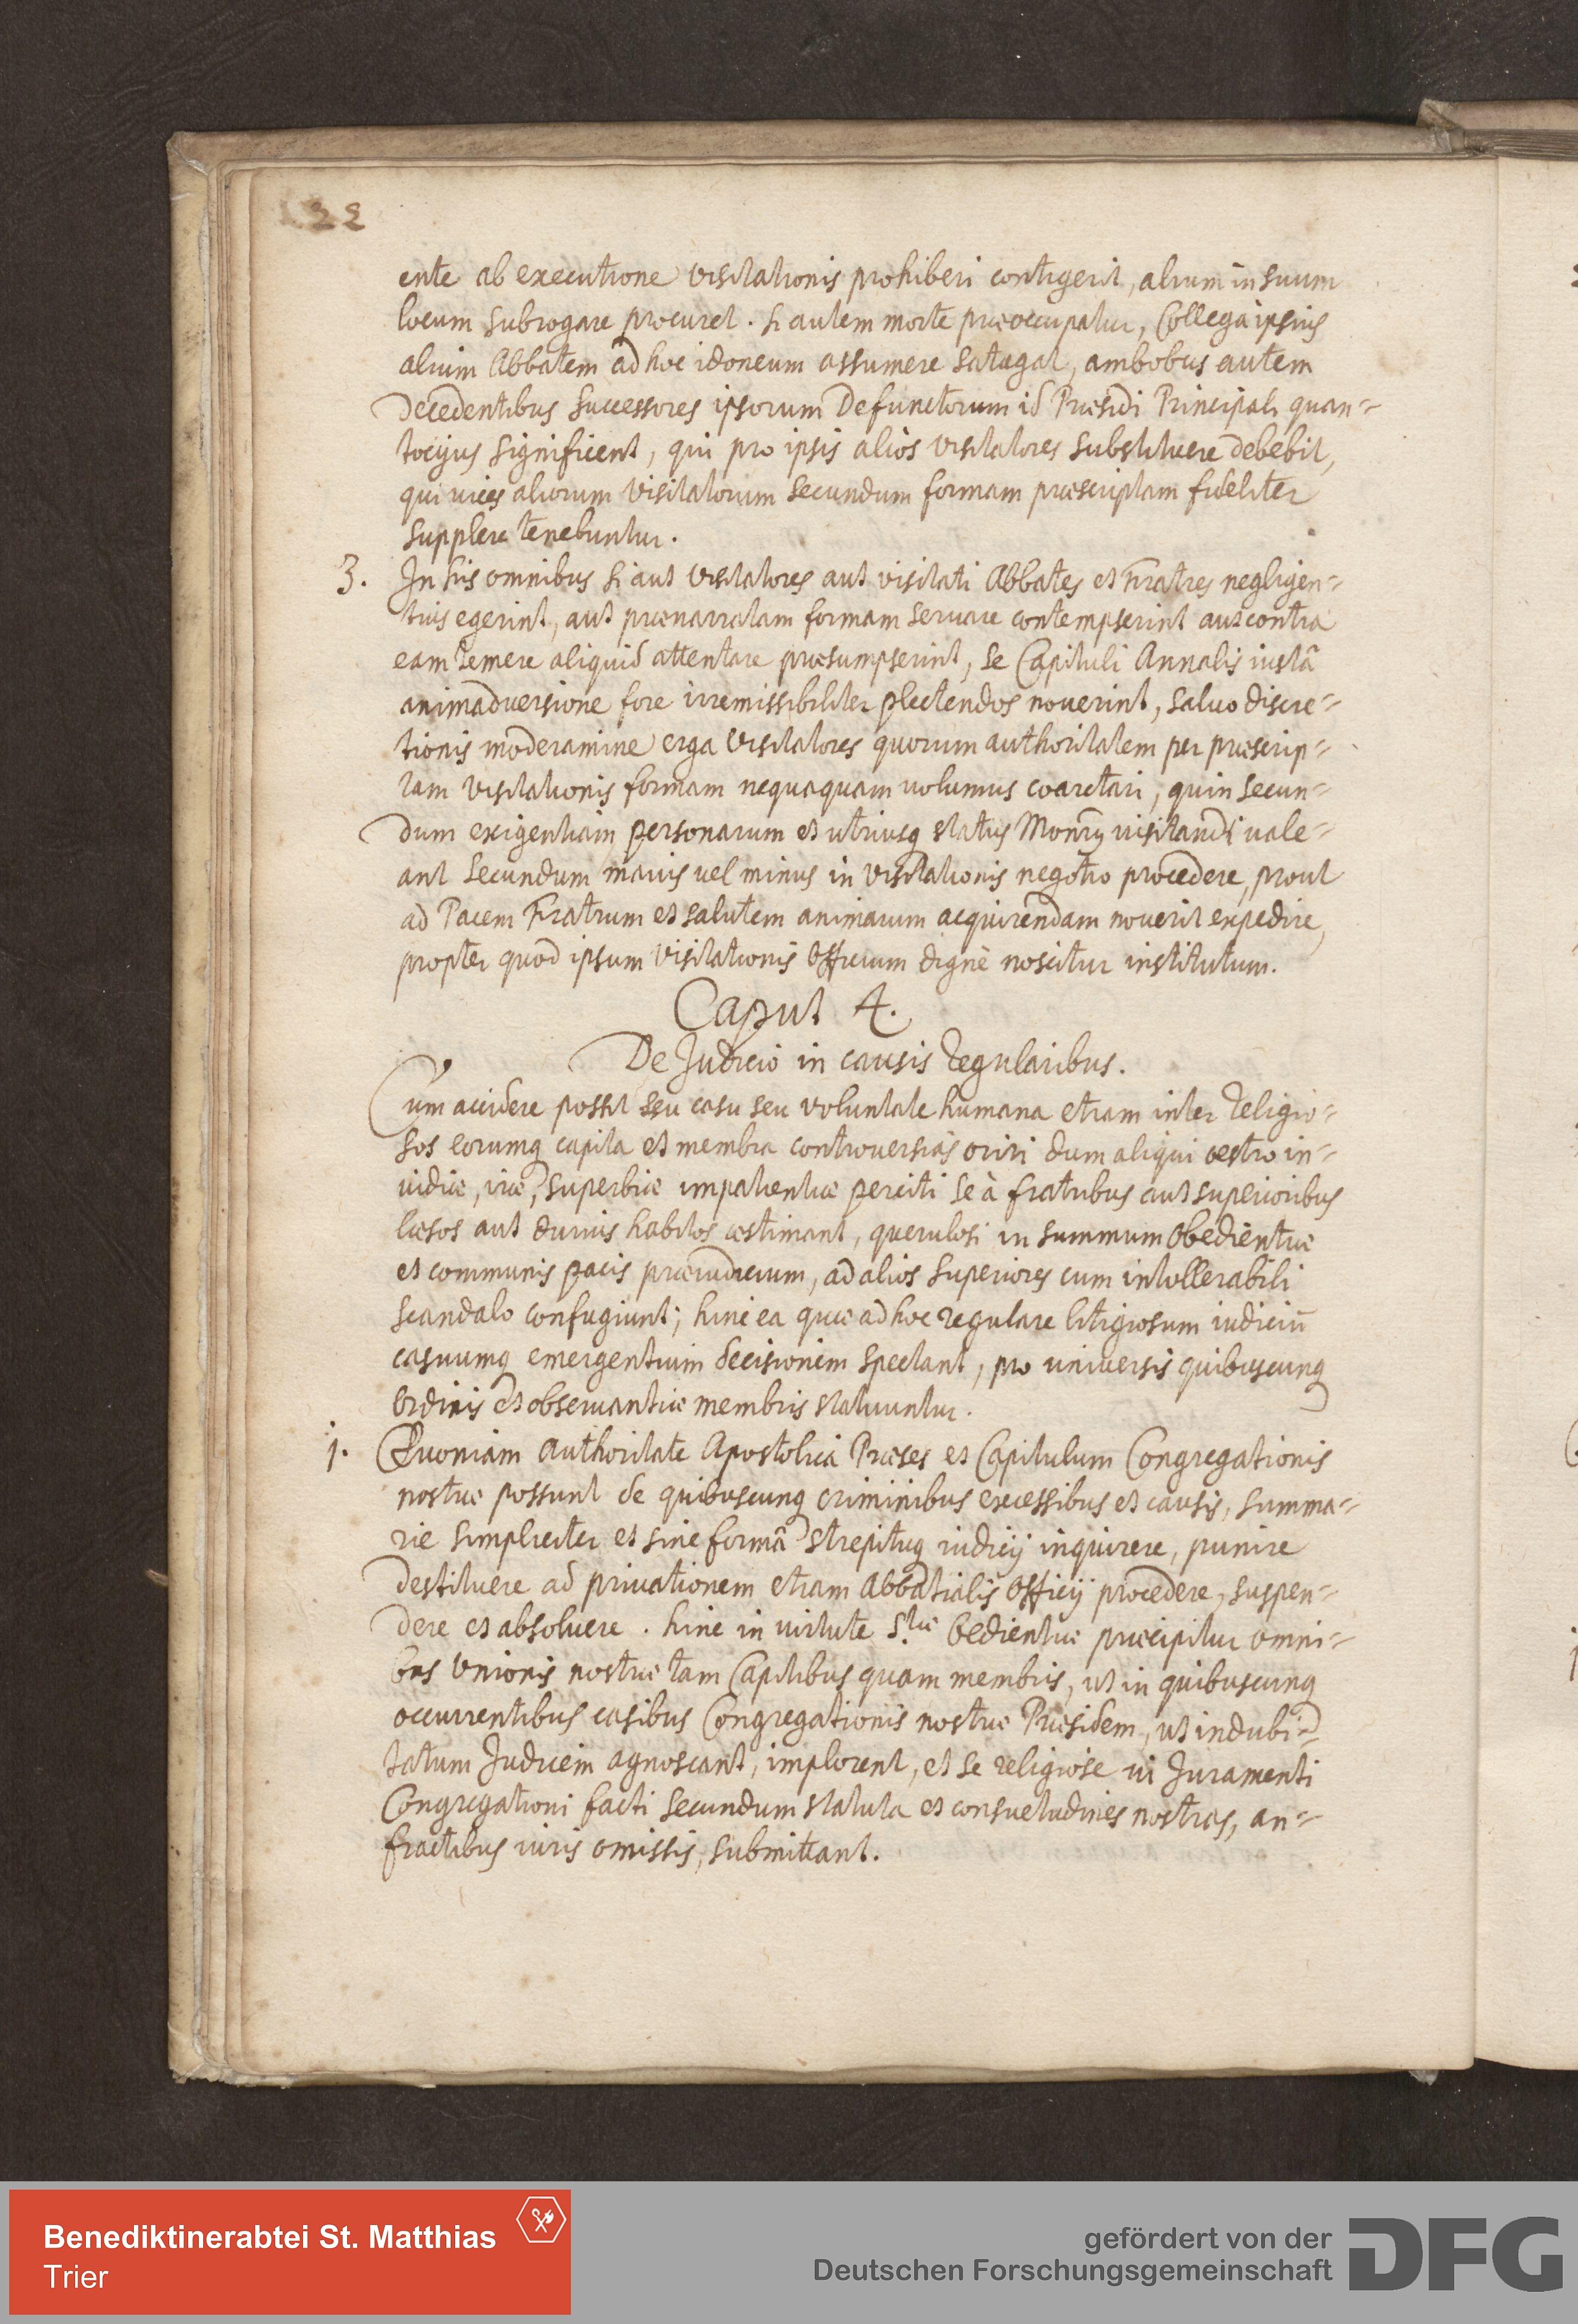 22
ente ab executione visitationis prohiberi contigerit, alium in suum
locum subrogare procuret. Si autem morte præoccupatur, Collega ipsius
alium Abbatem ad hoc idoneum assumere satagat, ambobus autem
decedentibus Successores ipsorum Defunctorum id Præsidi Principali quan=
tocÿus significent, qui pro ipsis aliòs visitatores substituere debebit,
qui vices aliorum Visitatorum secundum formam præscriptam fideliter
supplere tenebuntur.
3. In his omnibus si aut visitatores aut visitati Abbates et Fratres negligen=
tius egerint, aut prænarratam formam seruare contempserint aut contra
eam temere aliquid attentare præsumpserint, se Capituli Annalis iustâ
animaduersione fore irremissibiliter plectendos nouerint, saluo discre=
tionis moderamine erga visitatores quorum authoritatem per præscrip=
tam visitationis formam nequaquam uolumus coarctari, quin secun=
dum exigentiam personarum et utriusq status Monrÿ uisitandi uale=
ant secundum maius uel minus in visitationis negotio procedere, prout
ad Pacem Fratrum et salutem animarum acquirendam nouerit expedire,
propter quod ipsum Visitationis Officium dignè noscitur institutum.
Caput 4.
De Judicio in causis Regularibus.
Cum accidere possit seu casu seu voluntate humana etiam inter Religio=
sos eorumq capita et membra controuersias oriri dum aliqui œstro in=
uidiæ, iræ, superbiæ impatientiæ perciti se à fratribus aut superioribus
læsos aut durius habitos æstimant, querulosi in summum Obedientiæ
et communis pacis præiudicium, ad alios superiores cum intollerabili
scandalo confugiunt; hinc ea quæ ad hoc regulare litigiosum iudiciū
casuumq emergentium decisionem spectant, pro uniuersis quibuscunq
Ordinis et obseruantiæ membris statuuntur.
1. Quoniam authoritate Apostolica Præses et Capitulum Congregationis
nostræ possunt de quibuscunq criminibus excessibus et causis, summa=
rie simpliciter et sine formâ strepituq iudicÿ inquirere, punire
destituere ad priuationem etiam Abbatialis Officÿ procedere, suspen=
dere et absoluere. hinc in uirtute S.tæ Obedientiæ præcipitur omni=
bus Vnionis nostræ tam Capitibus quam membris, ut in quibuscunq
occurrentibus casibus Congregationis nostræ Præsidem, ut indubi=
tatum Judicem agnoscant, implorent, et se religiose ui Juramenti
Congregationi facti secundum statuta et consuetudines nostras, an=
fractibus iuris omissis, submittant.
Benediktinerabtei St. Matthias
Trier
gefördert von der
Deutschen Forschungsgemeinschaft
DFG